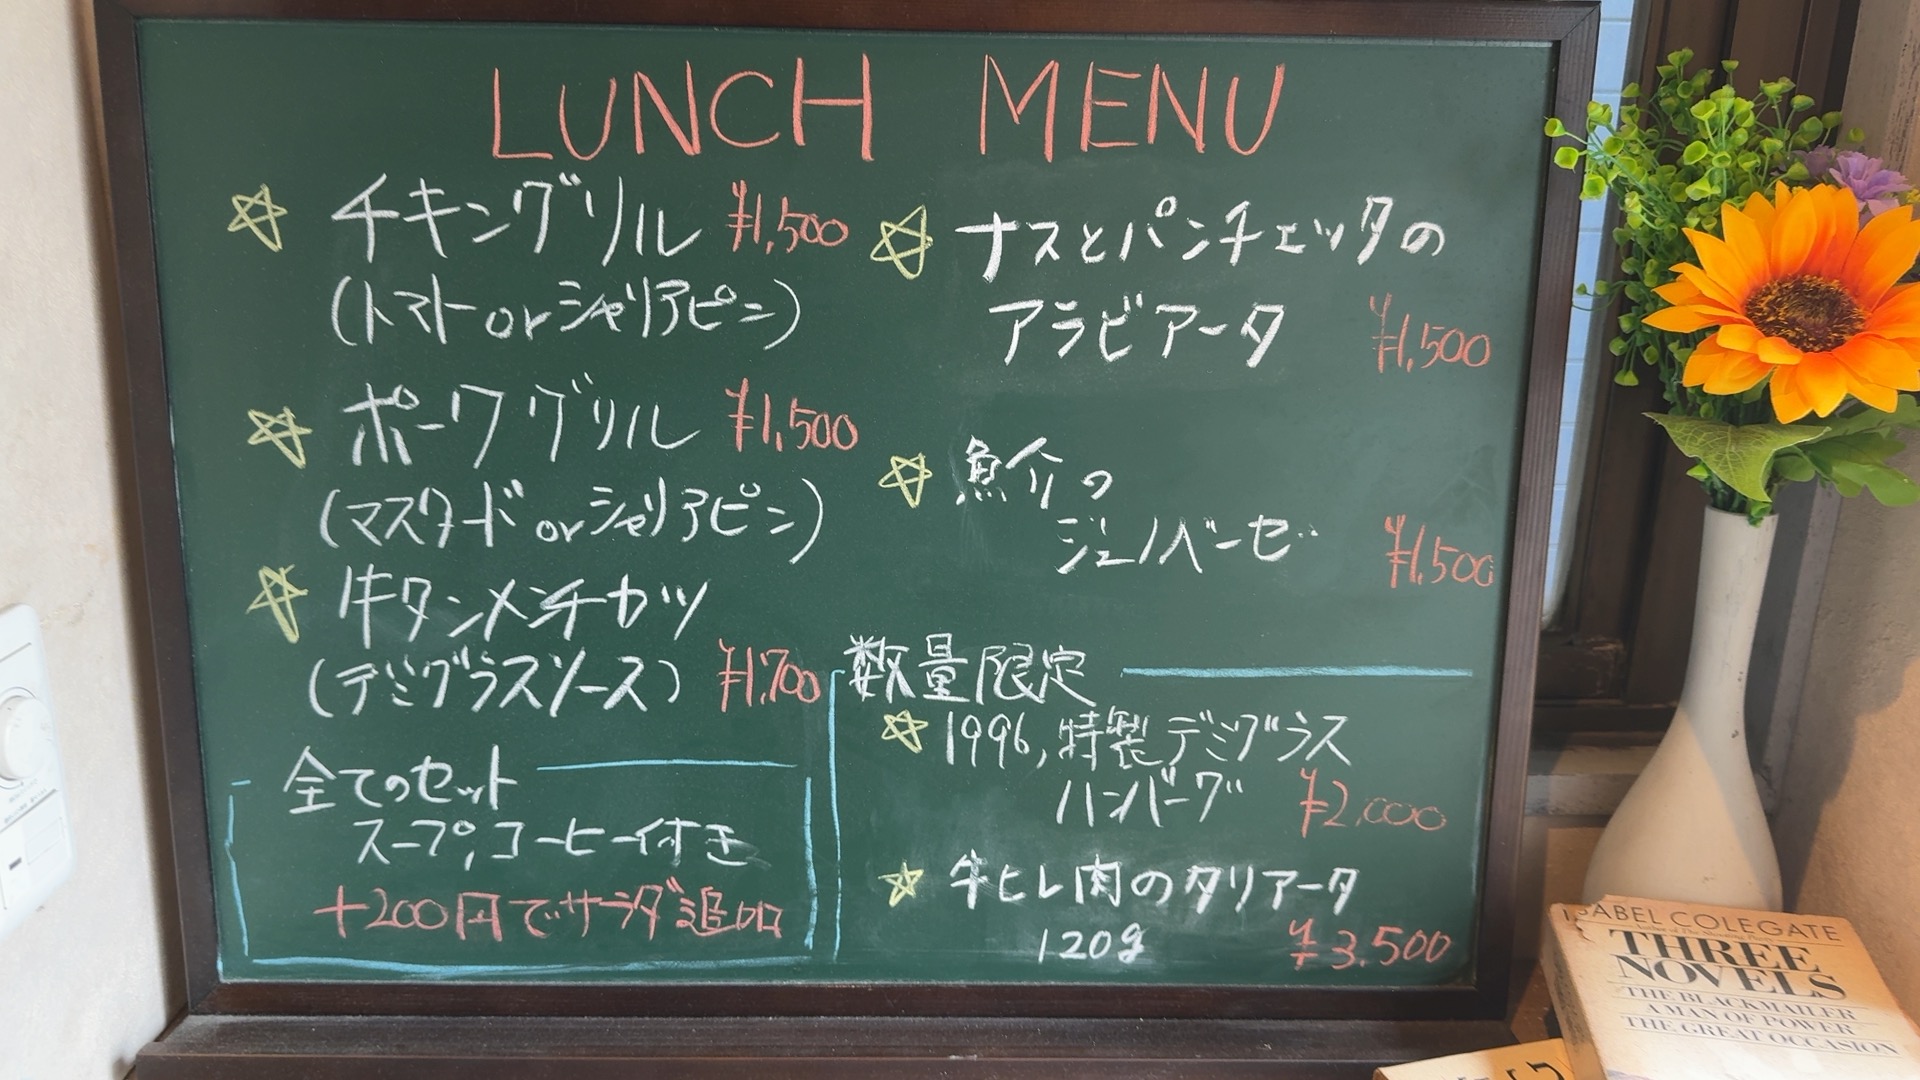 LUNCH MENU
☆ チキングリル ¥1,500
(トマト or シャリアピン)
☆ ポークグリル ¥1,500
(マスタード or シャリアピン)
☆ 牛タンメンチカツ
(デミグラスソース) ¥1,700
全てのセット
スープ,コーヒー付き
+200円でサラダ追加
☆ ナスとパンチェッタの
アラビアータ ¥1,500
☆ 魚介の
ジェノベーゼ ¥1,500
数量限定
☆ 1996, 特製デミグラス
ハンバーグ ¥2,000
☆ 牛ヒレ肉のタリアータ
120g ¥3,500
ISABEL COLEGATE
THREE
NOVELS
THE BLACKMAILER
A MAN OF POWER
THE GREAT OCCASION